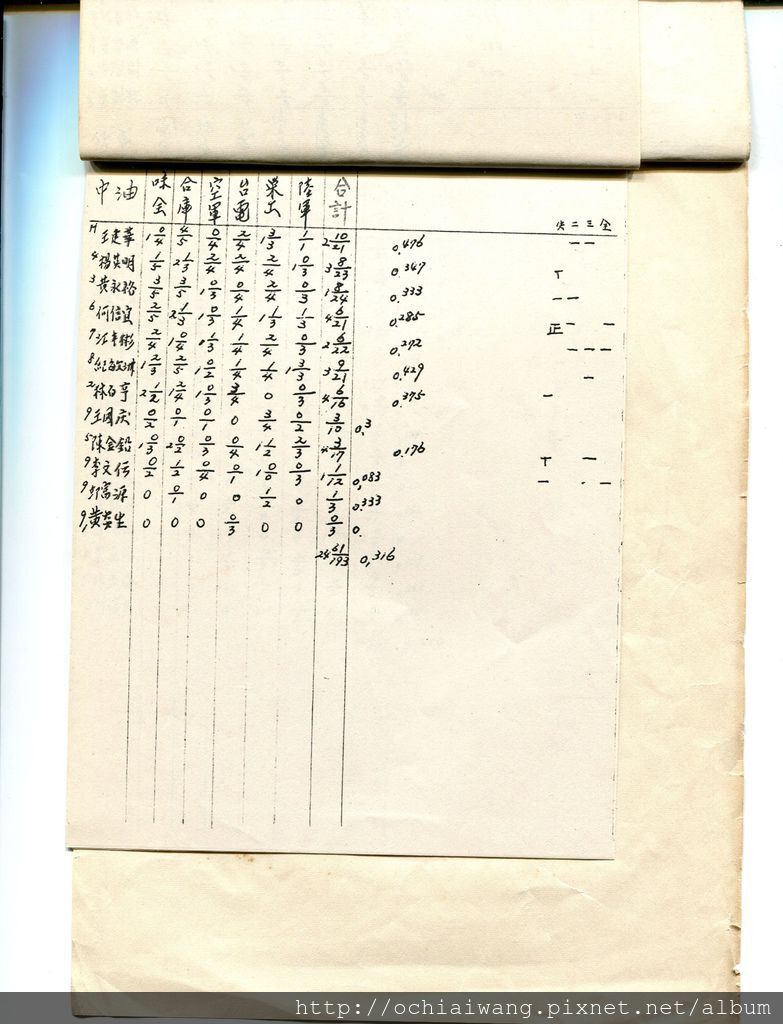 中油 味全 合庫 空軍 台電 榮工 陸軍 合計 失 二 三 全
王建華 1 0/4 4/5 0/4 2/4 1 3/3 1/1 2 10/21 0.476 一 一
4 楊英明 1/5 2 1/3 2/4 2/4 2/4 1 0/3 3 8/23 0.347 丅
3 黃永裕 3/5 3/5 1 0/3 0/4 2/4 0/3 1 8/24 0.333 一 一
6 何信宜 2/5 2 1/3 1 0/3 1/4 1 1/3 1/3 4 6/21 0.285 正 一 一
7 江 彬 1 2/4 1 0/4 1/3 1/4 2/4 0/3 2 6/22 0.272 一 一 一
8 1 2/3 2/5 1 0/2 1/4 1/4 1 3/3 3 9/21 0.429 一
2 林百亨 2 1/2 1 2/4 1 0/3 3/4 0 0/3 4 6/16 0.375 一
9 王國慶 0/2 0/1 0/1 0 3/4 0/2 3/10 0.3
5 陳金鉛 1 0/3 2 0/2 0/3 0/4 1 1/2 2/3 4 3/17 0.176
9 李文 0/2 1/2 0/4 0/1 1 0/0 0/3 1 1/12 0,083 丅 一
9 彭富源 0 0/1 0 0 1/2 0 1/3 0.333 一 一 一
9, 黃 生 0 0 0 0/3 0 0 0/3 0.
24 61/193 0,316
http://ochiaiwang.pixnet.net/album